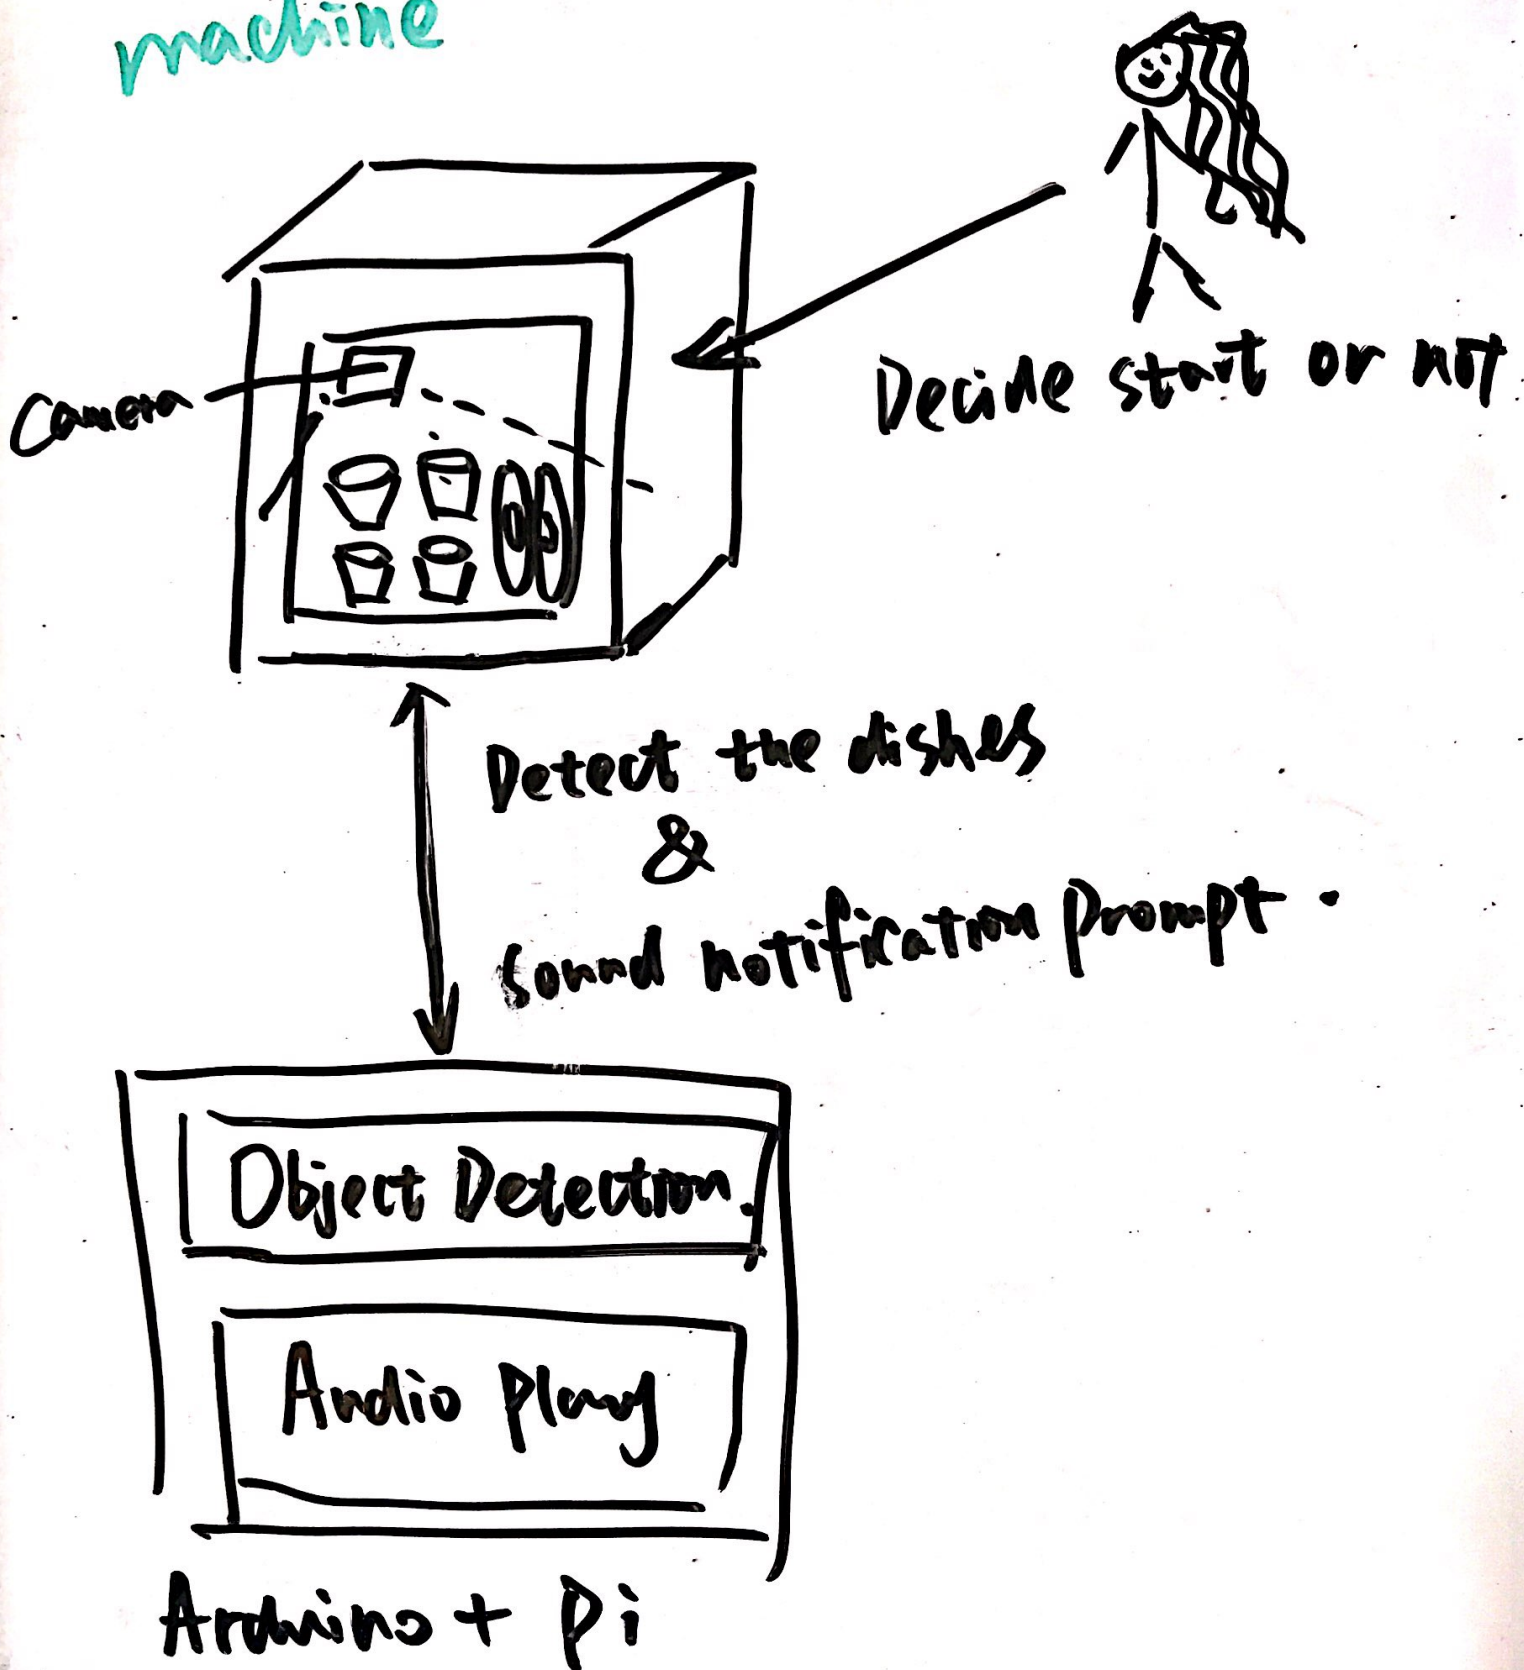 machine
Camera
Decide start or not
Detect the dishes
&
Sound notification prompt.
Object Detection.
Audio Play
Arduino + Pi